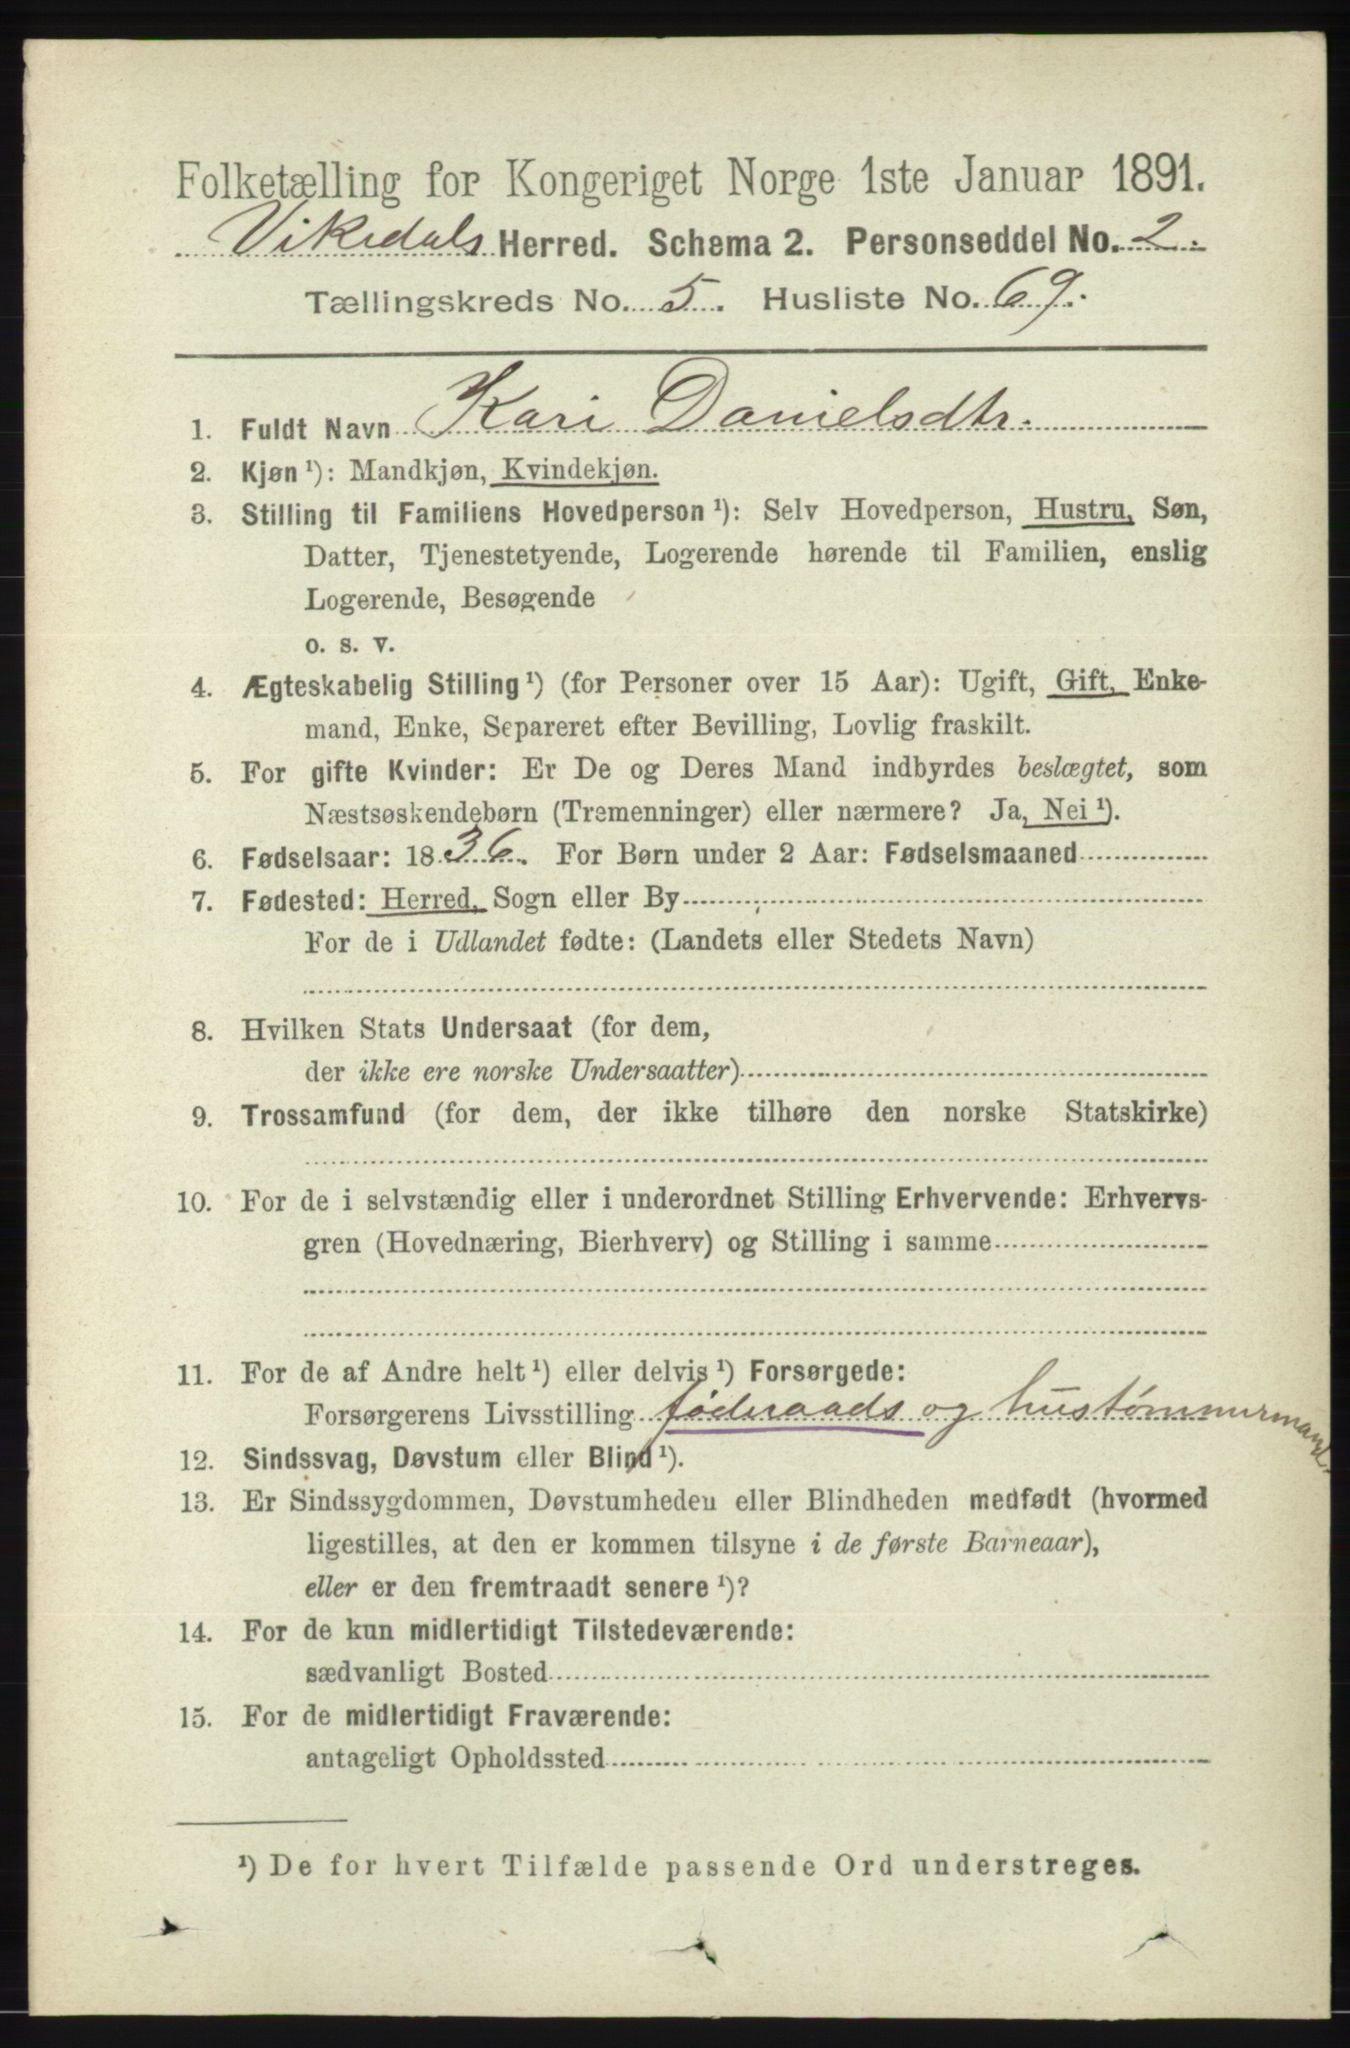 Folketælling for Kongeriget Norge 1ste Januar 1891.
Vikedals Herred. Schema 2. Personseddel No. 2.
Tællingskreds No. 5. Husliste No. 69.
1. Fuldt Navn Kari Danielsdtr.
2. Kjøn ¹): Mandkjøn, Kvindekjøn.
3. Stilling til Familiens Hovedperson ¹): Selv Hovedperson, Hustru, Søn,
Datter, Tjenestetyende, Logerende hørende til Familien, enslig
Logerende, Besøgende
o. s. v.
4. Ægteskabelig Stilling ¹) (for Personer over 15 Aar): Ugift, Gift, Enke-
mand, Enke, Separeret efter Bevilling, Lovlig fraskilt.
5. For gifte Kvinder: Er De og Deres Mand indbyrdes beslægtet, som
Næstsøskendebørn (Tremenninger) eller nærmere? Ja, Nei ¹).
6. Fødselsaar: 1836. For Børn under 2 Aar: Fødselsmaaned
7. Fødested: Herred, Sogn eller By
For de i Udlandet fødte: (Landets eller Stedets Navn)
8. Hvilken Stats Undersaat (for dem,
der ikke ere norske Undersaatter)
9. Trossamfund (for dem, der ikke tilhøre den norske Statskirke)
10. For de i selvstændig eller i underordnet Stilling Erhvervende: Erhvervs-
gren (Hovednæring, Bierhverv) og Stilling i samme
11. For de af Andre helt ¹) eller delvis ¹) Forsørgede:
Forsørgerens Livsstilling føderaads og hustømmermand.
12. Sindssvag, Døvstum eller Blind ¹).
13. Er Sindssygdommen, Døvstumheden eller Blindheden medfødt (hvormed
ligestilles, at den er kommen tilsyne i de første Barneaar),
eller er den fremtraadt senere ¹)?
14. For de kun midlertidigt Tilstedeværende:
sædvanligt Bosted
15. For de midlertidigt Fraværende:
antageligt Opholdssted
¹) De for hvert Tilfælde passende Ord understreges.